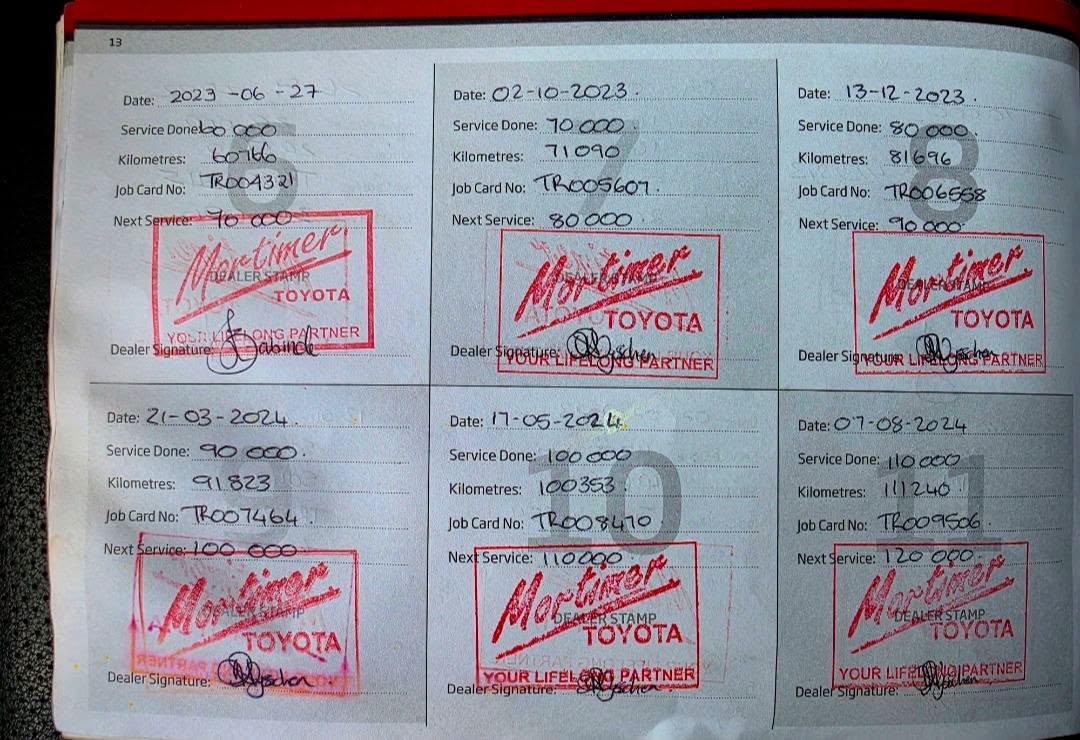 13
Date: 2023-06-27
Service Done: 60 000
Kilometres: 60766
Job Card No: TR004321
Next Service: 70 000
Mortimer
DEALER STAMP
TOYOTA
YOUR LIFELONG PARTNER
Dealer Signature:
6
Date: 02-10-2023.
Service Done: 70 000.
Kilometres: 71090
Job Card No: TR005607.
Next Service: 80000.
Mortimer
DEALER STAMP
TOYOTA
YOUR LIFELONG PARTNER
Dealer Signature:
7
Date: 13-12-2023.
Service Done: 80 000.
Kilometres: 81696
Job Card No: TR006558
Next Service: 90 000.
Mortimer
DEALER STAMP
TOYOTA
YOUR LIFELONG PARTNER
Dealer Signature:
8
Date: 21-03-2024.
Service Done: 90 000.
Kilometres: 91823
Job Card No: TR007464.
Next Service: 100 000
Mortimer
DEALER STAMP
TOYOTA
Dealer Signature:
9
Date: 17-05-2024.
Service Done: 100000
Kilometres: 100353.
Job Card No: TR008470.
Next Service: 110000.
Mortimer
DEALER STAMP
TOYOTA
YOUR LIFELONG PARTNER
Dealer Signature:
10
Date: 07-08-2024
Service Done: 110000
Kilometres: 111240.
Job Card No: TR009506.
Next Service: 120 000.
Mortimer
DEALER STAMP
TOYOTA
YOUR LIFELONG PARTNER
Dealer Signature:
11